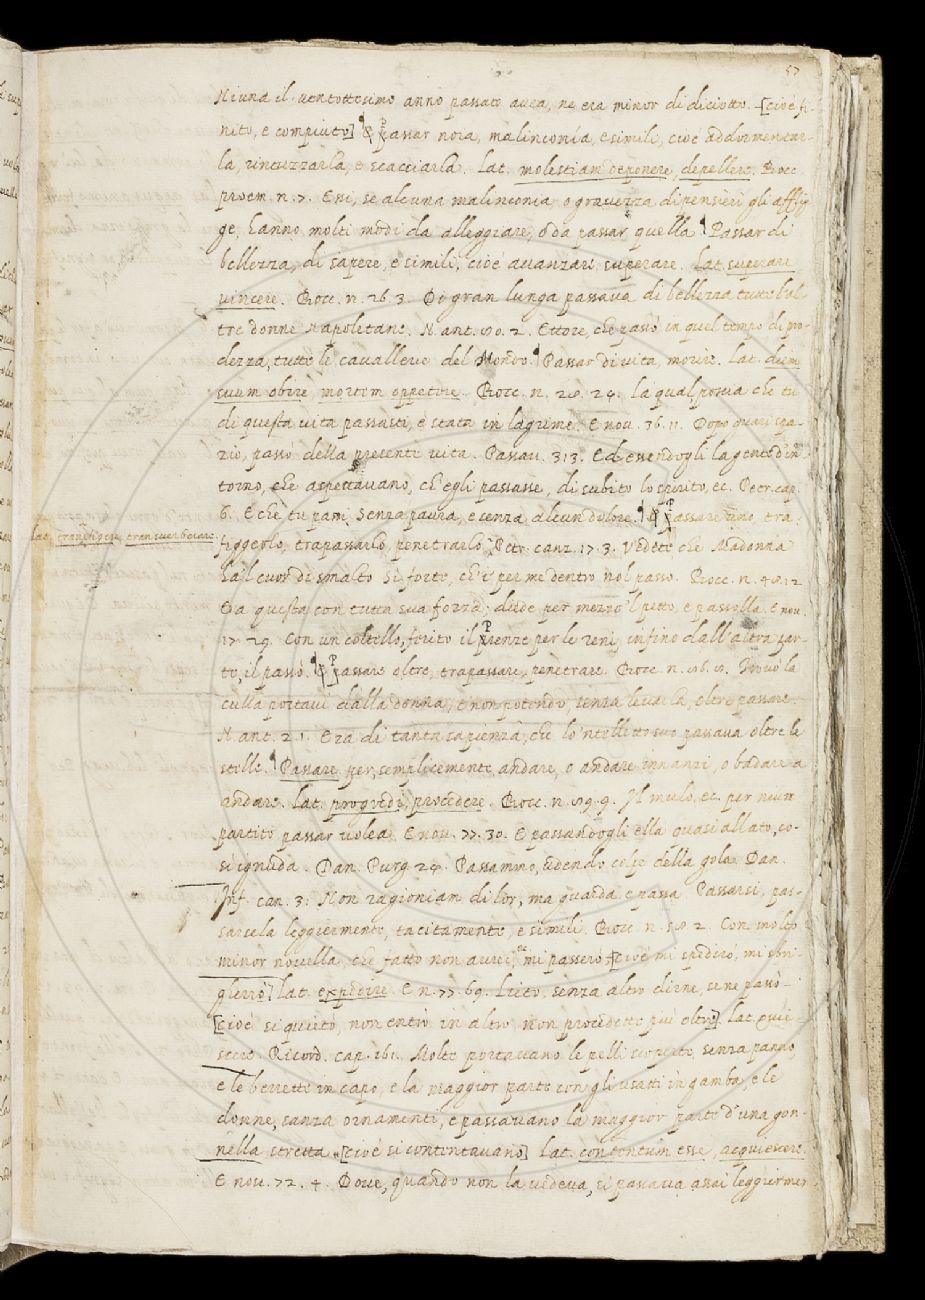 57
Niuna il ventottesimo anno passato avea, ne era minor di diciotto. [cioè fi-
nito, e compiuto] ¶ Passar noia, malinconía, e simili, cioè addormentar-
la, rintuzzarla, e scacciarla. Lat. molestiam deponere, depellere. Bocc.
proem. n. 7. Essi, se alcuna malinconia, o gravezza di pensieri gli affli-
ge, hanno molti modi da alleggiare, o da passar quella ¶ Passar di
bellezza, di sapere, e simili, cioè avanzare, superare. Lat. superare
vincere. Bocc. n. 26. 3. Di gran lunga passava di bellezza tutte l'al-
tre donne Napoletane. N. ant. 2. Ettore, che passò in quel tempo di pro-
dezza, tutte le cavallerie del Mondo. ¶ Passar di vita, morire. Lat. diem
suum obire, mortem oppetire. Bocc. n. 24. La qual, poscia che tu
di questa vita passasti, è stata in lagrime. E nov. 36. 11. Dopo quasi spa-
zio, passò della presente vita. Passav. 313. Ed essendogli la gente d'in-
torno, che aspettavano, ch'egli passasse, di subito lo spirito, ec. Petr. cap.
6. E che tu passi senza paura, e senza alcun dolore. ¶ Passare uno, tra-
lat. transfigere, transverberare.
figgerlo, trapassarlo, penetrarlo. Petr. canz. 17. 3. Vedete che Madonna
ha 'l cuor di smalto Sì forte, ch'i' per me dentro nol passo. Bocc. n. 48. 12
Da questa con tutta sua forza diede per mezzo 'l petto, e passolla. E nov.
17. 29. Con un coltello, ferito il prenze per le reni, infino dall'altra par-
te, il passò. ¶ Passare oltre, trapassare, penetrare. Bocc. n. Trovò la
culla postavi dalla donna, e non potendo, senza levarla, oltre passare.
N. ant. 21. Era di tanta sapienzia, che lo 'ntelletto suo passava oltre le
stelle. ¶ Passare per, semplicemente, andare, o andare innanzi, o badare a
andare. Lat. progredi, procedere. Bocc. n. 9. Il mulo, ec. per niun
partito passar volea. E nov. 77. 30. E passandogli ella quasi allato, co-
sì ignuda. Dan. Purg. 24. Passammo, udendo colpe della gola. Dan.
Inf. can. 3. Non ragioniam di lor, ma guarda e passa. Passarsi, pas-
sarsela leggiermente, tacitamente, e simili. Bocc. n. 2. Con molto
minor novella, che fatto non avrei, mi passerò [cioè mi spedirò, mi sbri-
gherrò] lat. expedire. E n. 77. 69. Lieto, senza altro dirne, se ne passò
[cioè si quietò, non entrò in altro, non procedette più oltre]. lat. qui-
scere. Ricord. cap. 161. Molte portavano le pelli scoperte, senza panno
e le berrette in capo, e la maggior parte con gli usatti in gamba, e le
donne, sanza ornamenti, e passavano la maggior parte d'una gon-
nella stretta. [cioè si contentavano] Lat. contentum esse, acquiescere.
E nov. 72. 4. Dove, quando non la vedeva, si passava assai leggiermen-